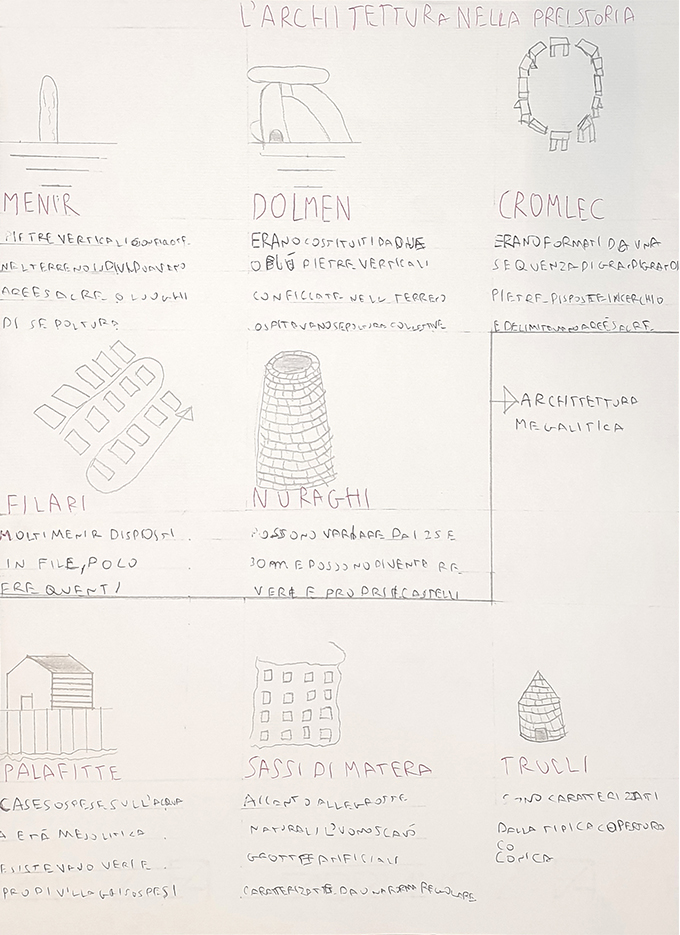 L'ARCHITETTURA NELLA PREISTORIA
MENIR
PIETRE VERTICALI CONFICCATE
NEL TERRENO INDIVIDUAVANO
AREE SACRE O LUOGHI
DI SEPOLTURA
DOLMEN
ERANO COSTITUITI DA DUE
O PIÚ PIETRE VERTICALI
CONFICCATE NELL TERRENO
OSPITAVANO SEPOLTURA COLLETTIVE
CROMLEC
ERANO FORMATI DA UNA
SEQUENZA DI GRANDI
PIETRE DISPOSTE IN CERCHIO
E DELIMITAVANO AREE SACRE
FILARI
MOLTI MENIR DISPOSTI
IN FILE, POLO
FREQUENTI
NURAGHI
POSSONO VARIARE DAI 25 E
30 AM E POSSONO DIVENTARE
VERI E PROPRI CASTELLI
ARCHITETTURA
MEGALITICA
PALAFITTE
CASE SOSPESE SULL'ACQUA
A ETÁ MESOLITICA
ESISTEVANO VERI E
PROPI VILLAGGI SOSPESI
SASSI DI MATERA
ACCANTO ALLE GROTTE
NATURALI L'UOMO SCAVÓ
GROTTE ARTIFICIALI
CARATERIZATE DA UNA FORMA REGOLARE
TRULLI
SONO CARATTERIZATI
DALLA TIPICA COPERTURA
CO
CONICA